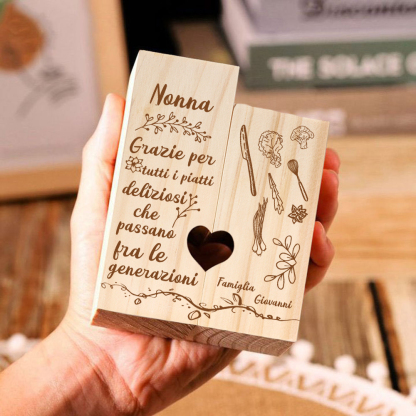 THE SOLACE
Nonna
Grazie per
tutti i piatti
deliziosi
che
passano
fra le
generazioni
Famiglia
Giovanni